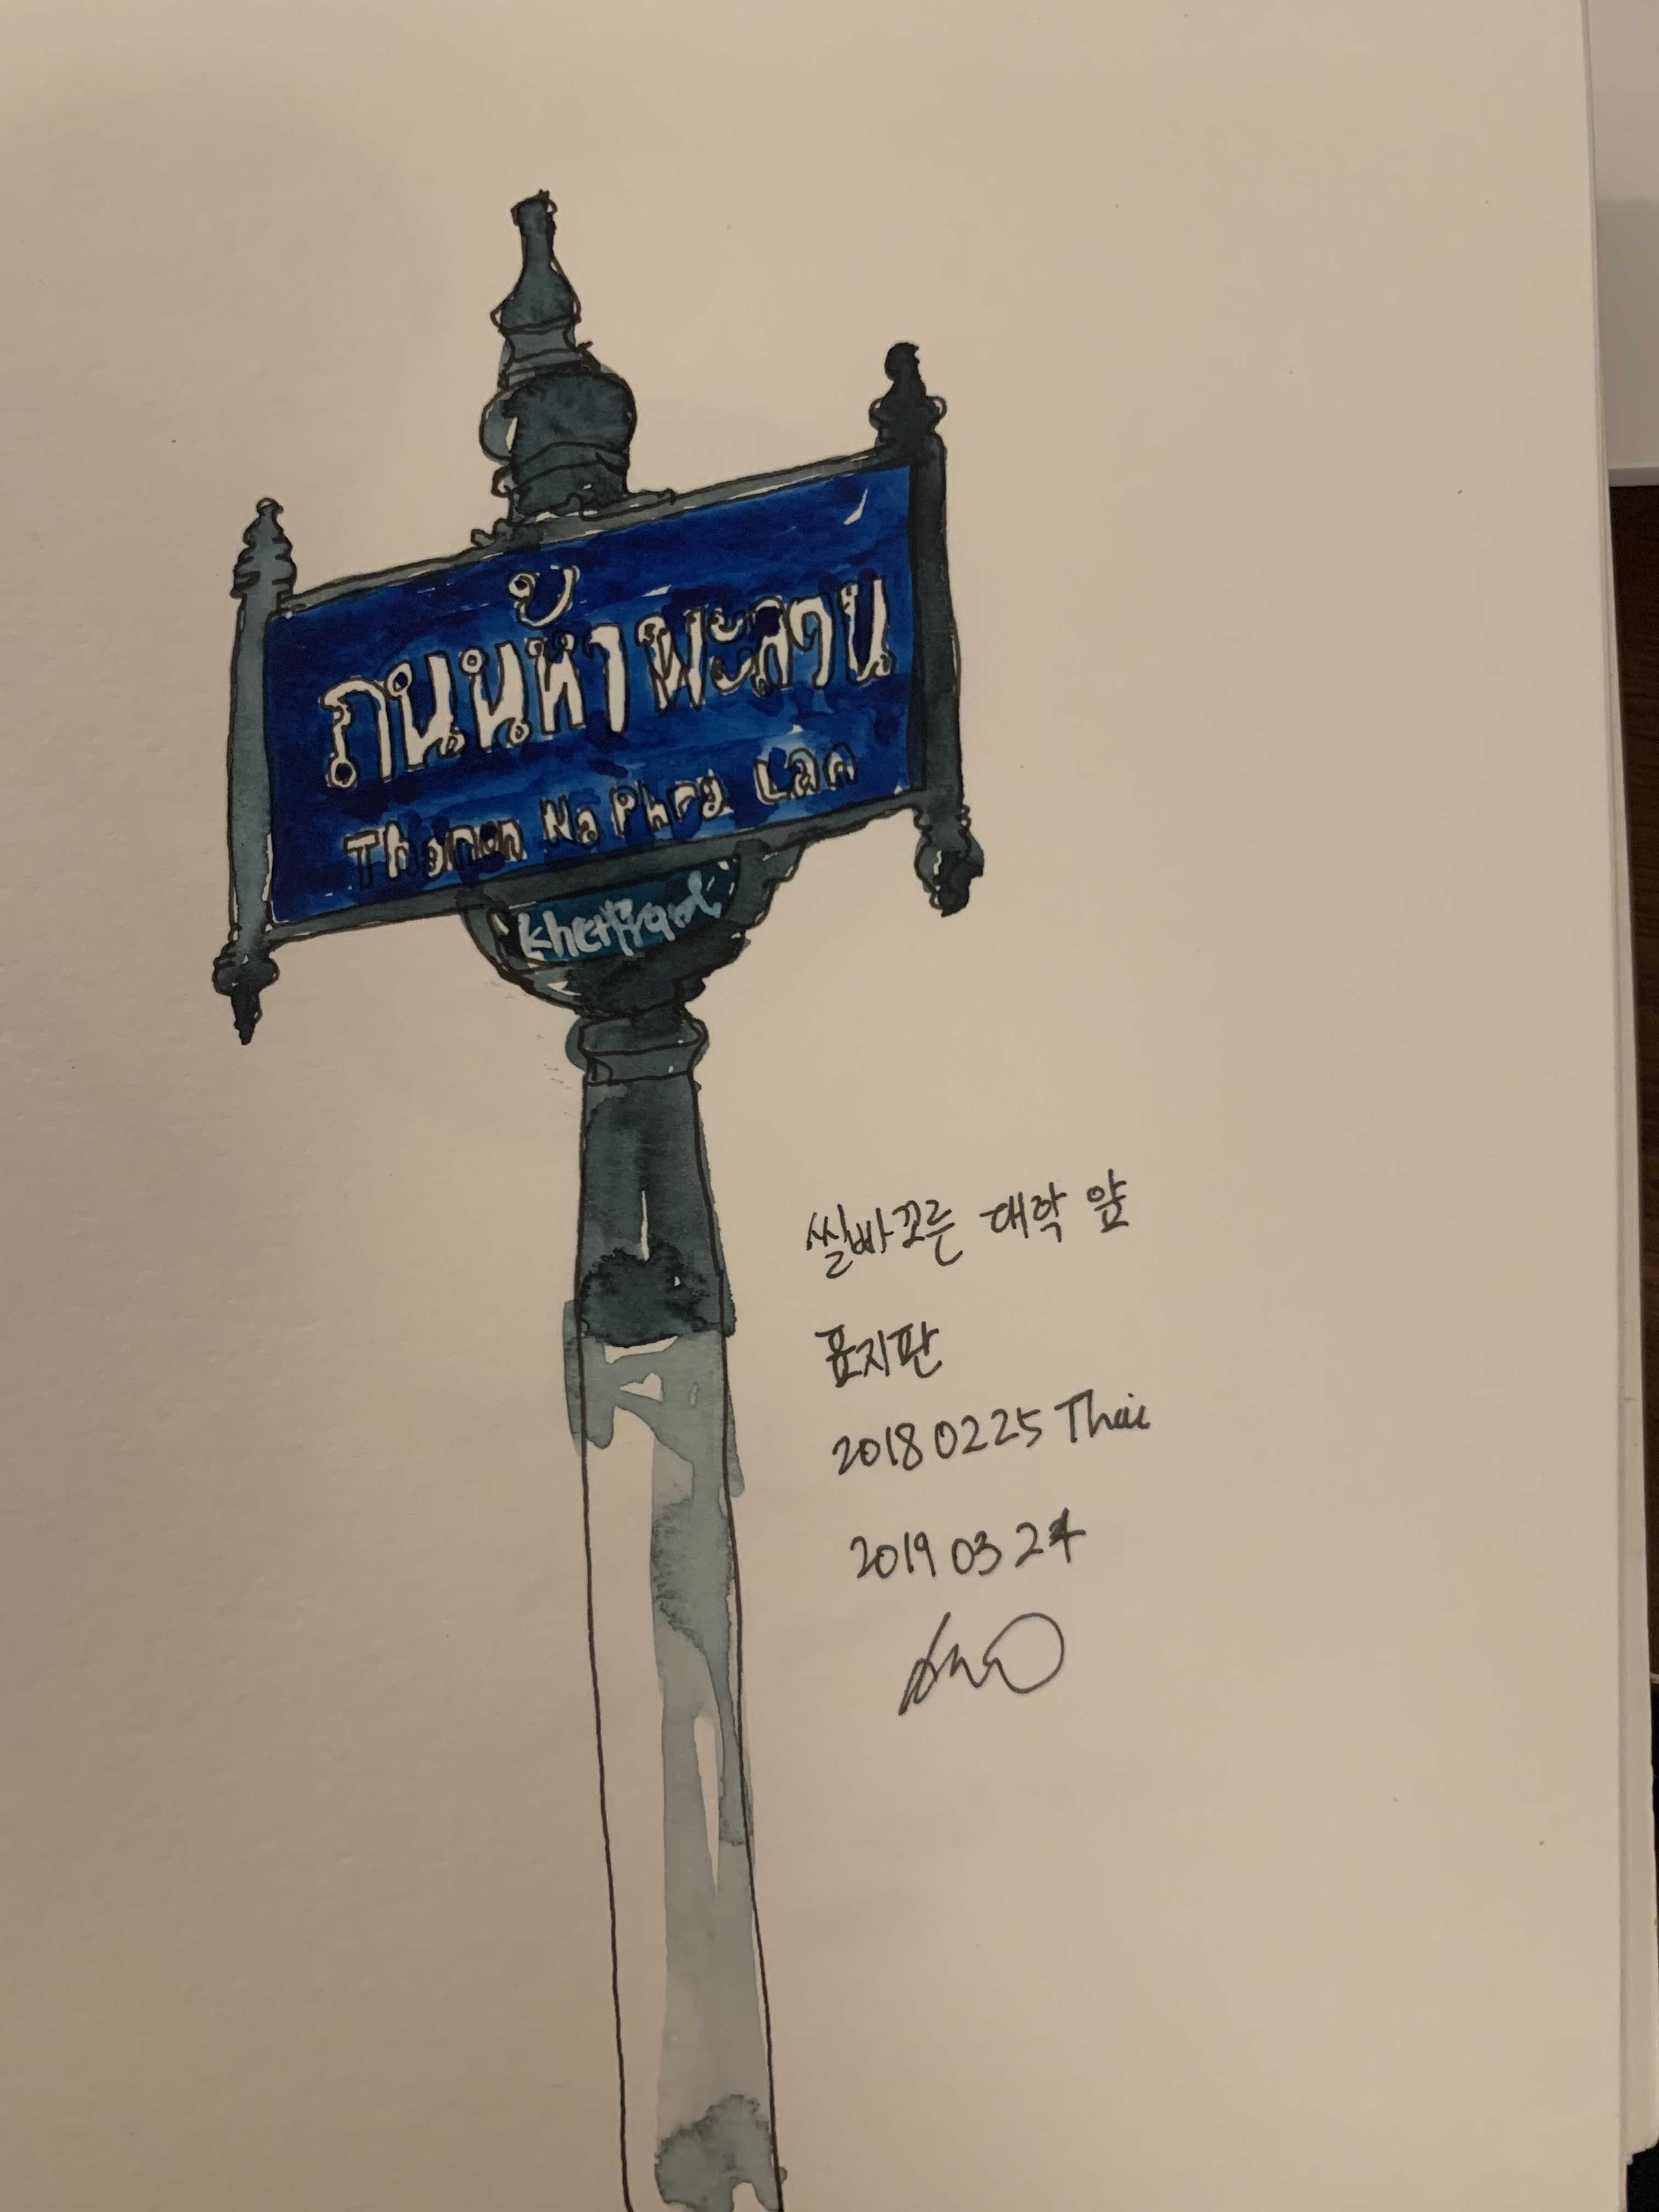 ถนนห้าพะลาน
Thanon Na Phra Lan
씰빠꼬른 대학 앞
표지판
2018 02 25 Thai
2019 03 24